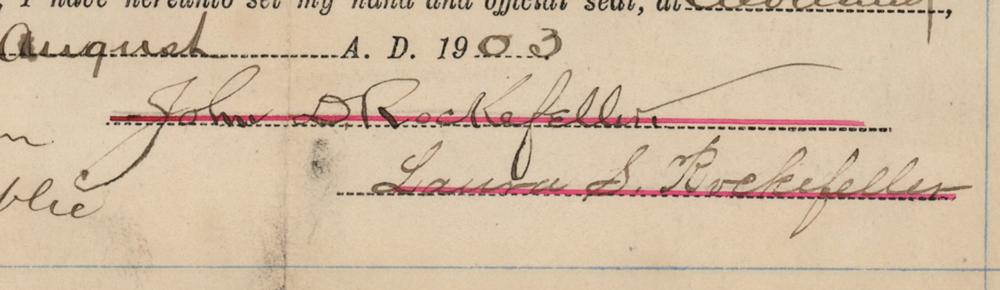 , I have hereunto set my hand and official seal, at
August A. D. 1903
John D. Rockefeller
Laura S. Rockefeller
blic